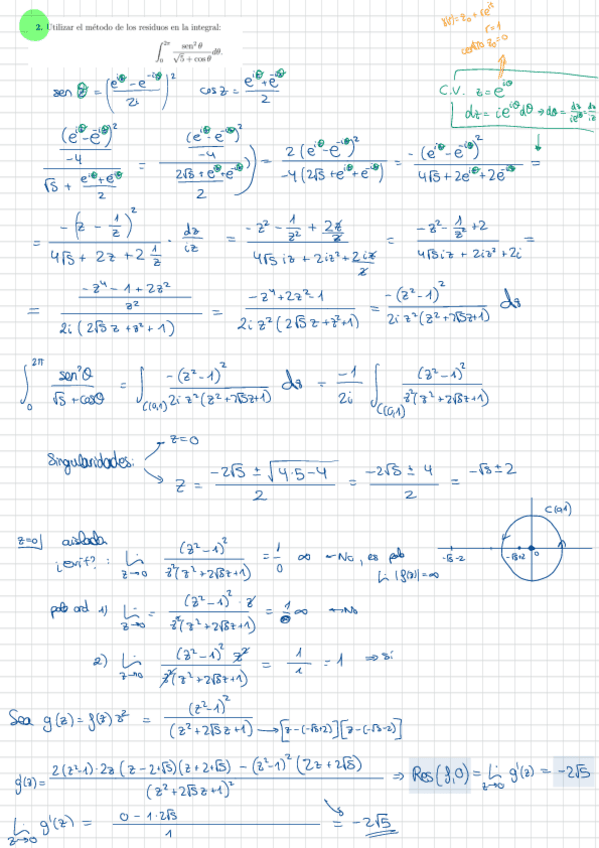 2. Utilizar el método de los residuos en la integral:
∫₀^{2π} sen²θ / (√5 + cosθ) dθ.
γ(t) = z₀ + re^{it}
r=1
centro z₀=0
sen θ = ((e^{iθ} - e^{-iθ}) / 2i)²   cos z = (e^{iθ} + e^{-iθ}) / 2
C.V. z = e^{iθ}
dz = ie^{iθ}dθ → dθ = dz/ie^{iθ} = dz/iz
((e^{iθ} - e^{-iθ})² / -4) / (√5 + (e^{iθ} + e^{-iθ})/2) = ((e^{iθ} - e^{-iθ})² / -4) / ((2√5 + e^{iθ} + e^{-iθ})/2) = 2(e^{iθ} - e^{-iθ})² / -4(2√5 + e^{iθ} + e^{-iθ}) = -(e^{iθ} - e^{-iθ})² / (4√5 + 2e^{iθ} + 2e^{-iθ}) =
= -(z - 1/z)² / (4√5 + 2z + 2 1/z) · dz/iz = (-z² - 1/z² + 2z/z) / (4√5 iz + 2iz² + 2iz/z) = (-z² - 1/z² + 2) / (4√5 iz + 2iz² + 2i) =
= ((-z⁴ - 1 + 2z²) / z²) / (2i(2√5 z + z² + 1)) = (-z⁴ + 2z² - 1) / (2i z²(2√5 z + z² + 1)) = -(z² - 1)² / (2i z²(z² + 2√5z + 1)) dz
∫₀^{2π} sen²θ / (√5 + cosθ) = ∫_{C(0,1)} -(z² - 1)² / (2i z²(z² + 2√5z + 1)) dz = -1/2i ∫_{C(0,1)} (z² - 1)² / (z²(z² + 2√5z + 1))
z = 0
Singularidades:
z = (-2√5 ± √(4·5 - 4)) / 2 = (-2√5 ± 4) / 2 = -√5 ± 2
C(0,1)
-√5-2   -√5+2   0
z=0| aislada
¿evit?: lim_{z→0} (z² - 1)² / (z²(z² + 2√5z + 1)) = 1/0 ∞ → No, es polo
lim |f(z)| = ∞
polo ord 1) lim_{z→0} = (z² - 1)² · z / (z²(z² + 2√5z + 1)) = 1/0 ∞ → No
2) lim_{z→0} (z² - 1)² z² / (z²(z² + 2√5z + 1)) = 1/1 = 1 ⇒ Sí
Sea g(z) = f(z) z² = (z² - 1)² / (z² + 2√5z + 1) → [z - (-√5+2)][z - (-√5-2)]
g'(z) = (2(z² - 1)·2z (z - 2+√5)(z + 2+√5) - (z² - 1)² (2z + 2√5)) / (z² + 2√5z + 1)² ⇒ Res(f, 0) = lim_{z→0} g'(z) = -2√5
lim_{z→0} g'(z) = (0 - 1·2√5) / 1 = -2√5